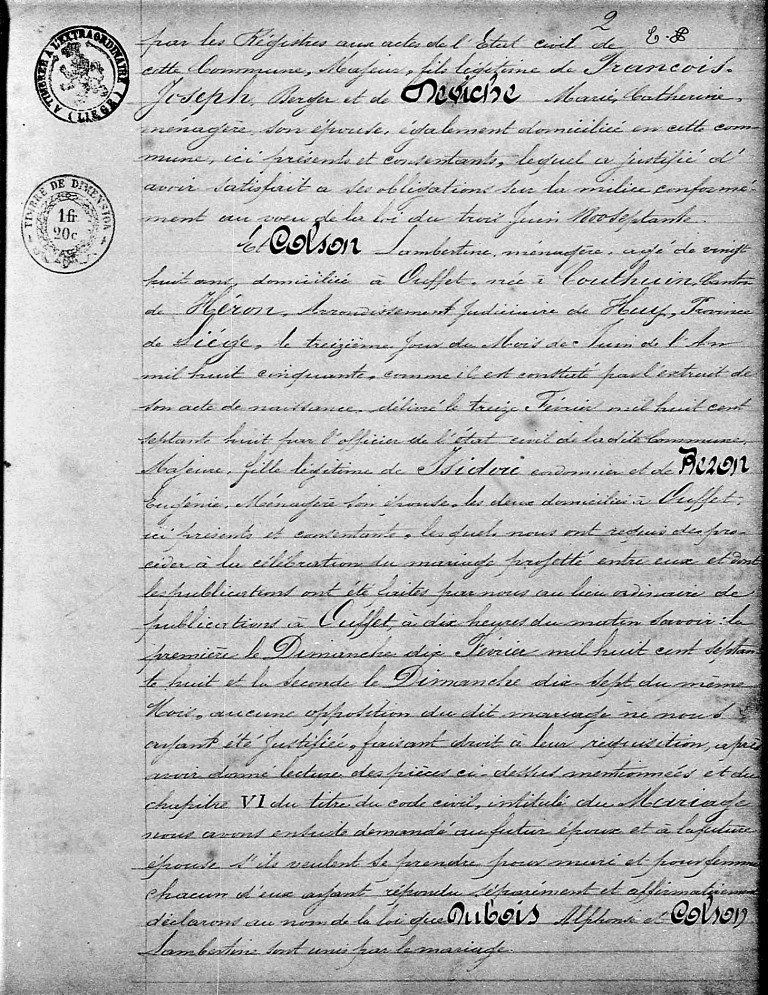 2
A TIMBRER À L'EXTRAORDINAIRE (LIÈGE)
TIMBRE DE DIMENSION
1fr
20c
par les Régistres aux actes de l'Etat civil de
cette Commune, Majeur, fils légitime de Francois-
Joseph, Berger et de Marie, Catherine,
ménagère, son épouse, également domiciliée en cette com-
mune, ici présents et consentants, lequel a justifié d'
avoir satisfait a ses obligations sur la milice conformé-
ment au voeu de la loi du trois Juin septante.
Et Colson Lambertine, ménagère, agé de vingt
huit ans, domiciliée à Ouffet, née à Couthuin, Canton
de Héron, Arrondissement Judiciaire de Huy, Province
de Liége, le treizième Jour du Mois de Juin de l'An
mil huit cinquante, comme il est constaté par l'extrait de
son acte de naissance, délivré le treize Février mil huit cent
septante huit par l'officier de l'état civil de la dite Commune,
Majeure, fille légitime de Isidore cordonnier et de
Eugénie, Ménagère son épouse, les deux domiciliés à Ouffet,
ici présents et consentants, lesquels nous ont requis de pro-
céder à la célébration du mariage projetté entre eux et dont
les publications ont été faites par nous au lieu ordinaire de
publications à Ouffet à dix heures du matin savoir: la
première le Dimanche dix Février mil huit cent septan-
te huit et la seconde le Dimanche dix-sept du même
Mois, aucune opposition du dit mariage ne nous
ayant été Justifiée, faisant droit à leur réquisition, après
avoir donné lecture des pièces ci-dessus mentionnées et du
chapitre VI du titre du code civil, intitulé du Mariage
nous avons ensuite demandé au futur époux et à la future
épouse s'ils veulent se prendre pour mari et pour femme
chacun d'eux ayant répondu séparément et affirmativement
déclarons au nom de la loi que Dubois Alphonse et Colson
Lambertine sont unis par le mariage.